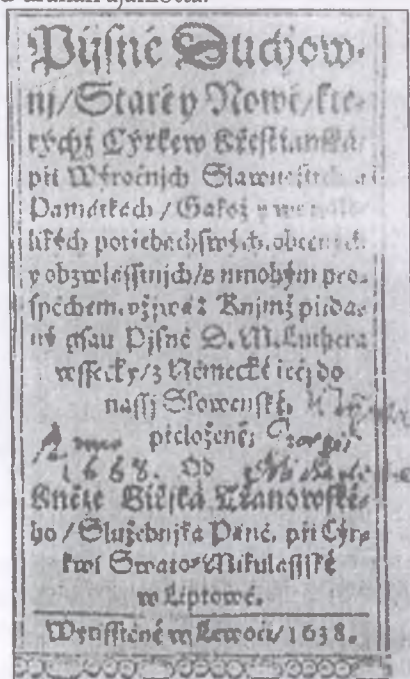 Pijsně Duchow-
nj / Staré y Nowé / kte-
rýchž Cyrkew Křestianská
při Wýročnjch Slawnostech a
Památkách / Gakož y we wsse-
likých potřebách swých, obecných
y obzwlásstnjch / s mnohým pro-
spěchem vžjwá: Knjmž přida-
né gsau Pjsně D. M. Luthera
wssecky / z Německé řeči do
nassj Slowenské,
přeložené;
Anno
1668. Od
Kněze Giřjka Tranowské-
ho / Služebnjka Páně, při Cýr-
kwi Swato-Mikulásské
w Liptowě.
Wytisstěné w Lewoči / 1638.